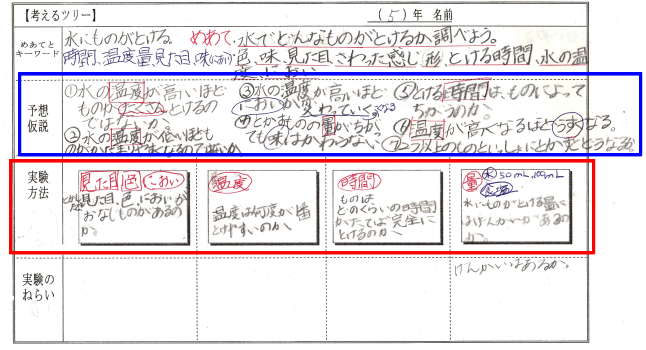 【考えるツリー】
(5)年 名前
めあてと
キーワード
水にものがとける。めあて.水でどんなものがとけるか、調べよう。
時間、温度量見た目、味におい色、味、見た目さわった感じ形、とける時間、水の温
度、におい
予想
仮説
①水の温度が高いほど
ものがたくさんとけるの
ではないか。
②水の温度が低いほど
③水の温度が高いほど
においが変わっていく
④とかすものの量がちがっ
ても味はかわらない
⑤とける時間は、ものによって
ちがうのか。
⑥温度が高くなるほどうすくなる。
⑦二つ以上のものといっしょにとかすと
実験
方法
見た目 色 におい
見た目、色、においが
おなじものがあるの
か。
温度
温度は何度が一番
とけやすいのか、
時間
ものは、
どのくらいの時間
かたてば完全に
とけるのか、
量 水50mL,100mL
水にものがとける量に
はげんかいがあるの
か。
実験の
ねらい
げんかいはあるか。